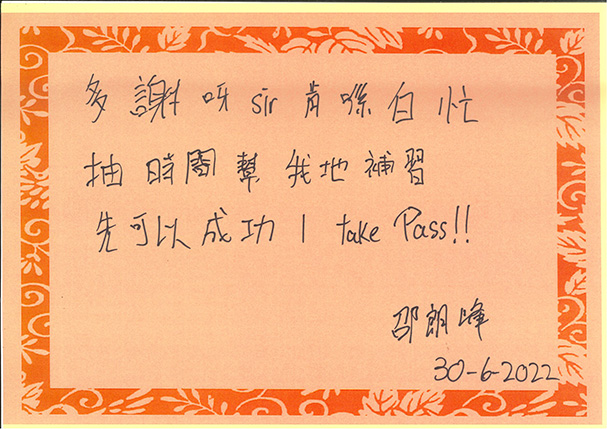 多謝呀sir肯喺白忙
抽時間幫我地補習
先可以成功1 take Pass!!
邵朗峰
30-6-2022